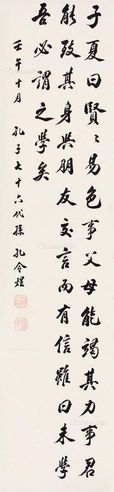 子夏曰賢〻易色事父母能竭其力事君
能致其身與朋友交言而有信雖曰未學
吾必謂之學矣
壬午十月 孔子七十六代孫 孔令煜